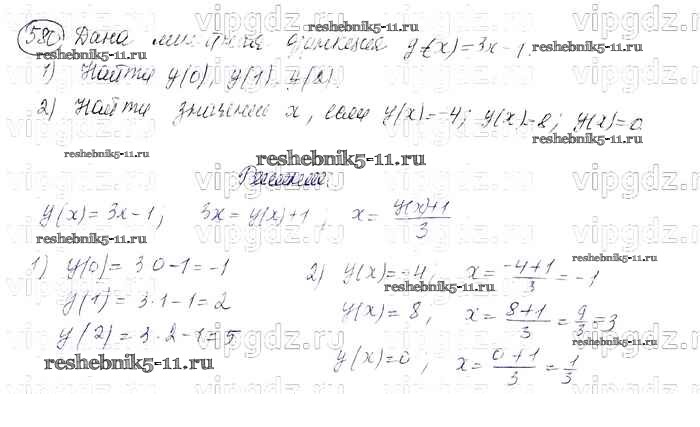 580 Дана линейная функция y(x)=3x-1.
1) Найти y(0), y(1), y(2).
2) Найти значение x, если y(x)=-4; y(x)=8; y(x)=0.
Решение.
y(x)=3x-1; 3x=y(x)+1; x=y(x)+1/3
1) y(0)=3·0-1=-1
y(1)=3·1-1=2
y(2)=3·2-1=5
2) y(x)=-4, x=-4+1/3=-1
y(x)=8, x=8+1/3=9/3=3
y(x)=0, x=0+1/3=1/3
reshebnik5-11.ru
vipgdz.ru